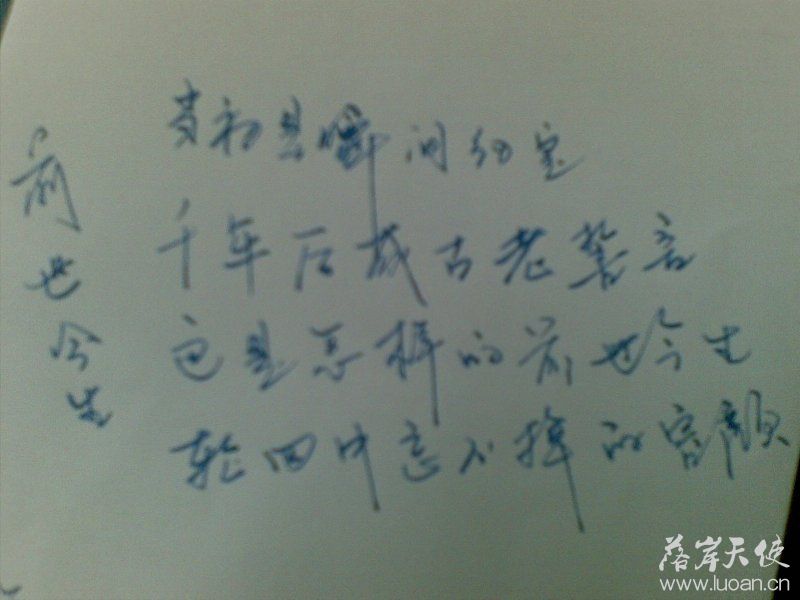 前世今生
当初是瞬间约定
千年后成古老誓言
这是怎样的前世今生
轮回中忘不掉的容颜
落岸天使
www.luoan.cn